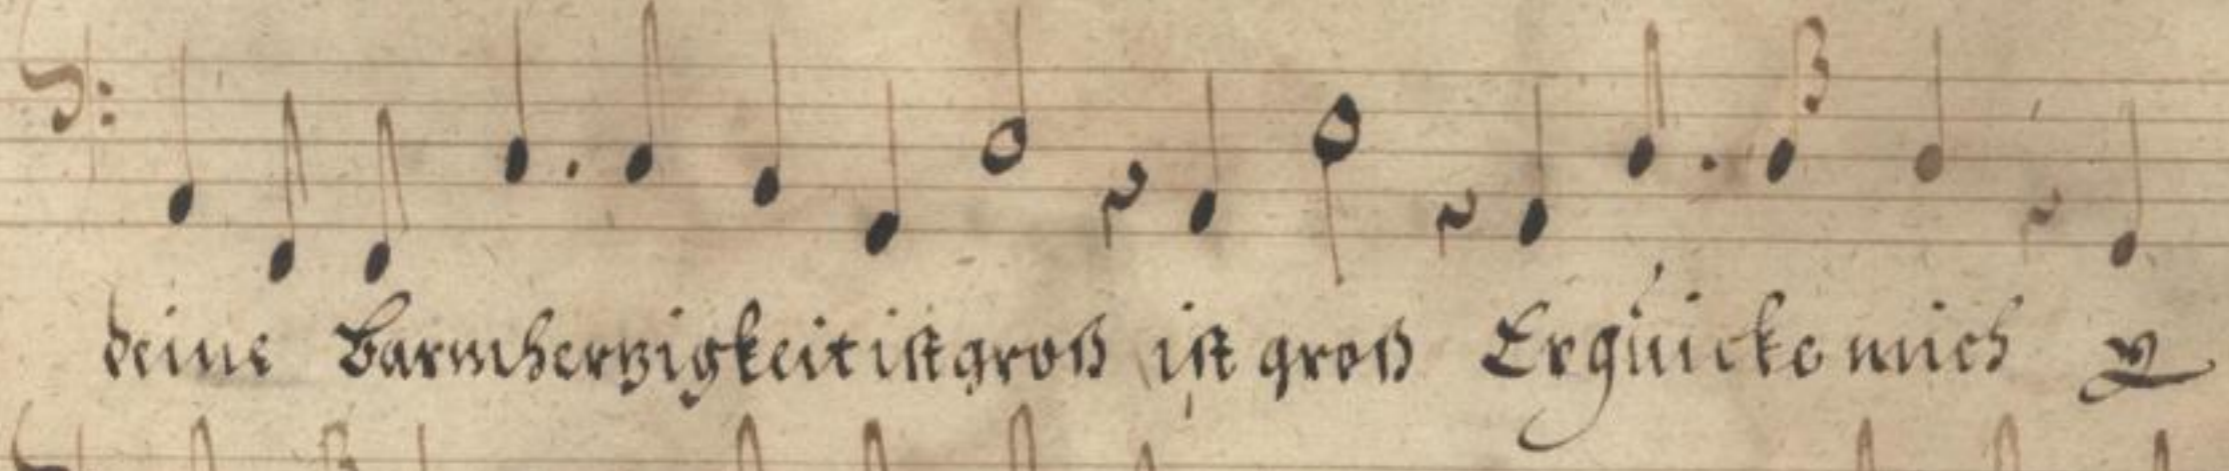 deine Barmhertzigkeit ist groß ist groß Erquicke mich